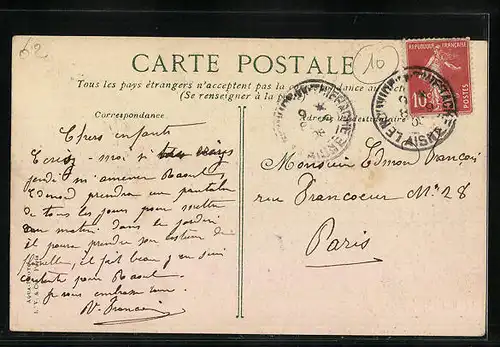 62
10
RÉPUBLIQUE FRANÇAISE
10
POSTES
CARTE POSTALE
Tous les pays étrangers n'acceptent pas la correspondance au
(Se renseigner à la
Correspondance
Chers enfants
moi si
jeudi ni amener Raoul
Edmond prendra un pantalon
de tous les jours pour mettre
matin dans le jardin
il pourra prendre son costume de
flanelle, il fait beau j'en suis
contente pour Raoul.
je vous embrasse
V. François
Monsieur Edmond François
rue Francoeur No 28
Paris